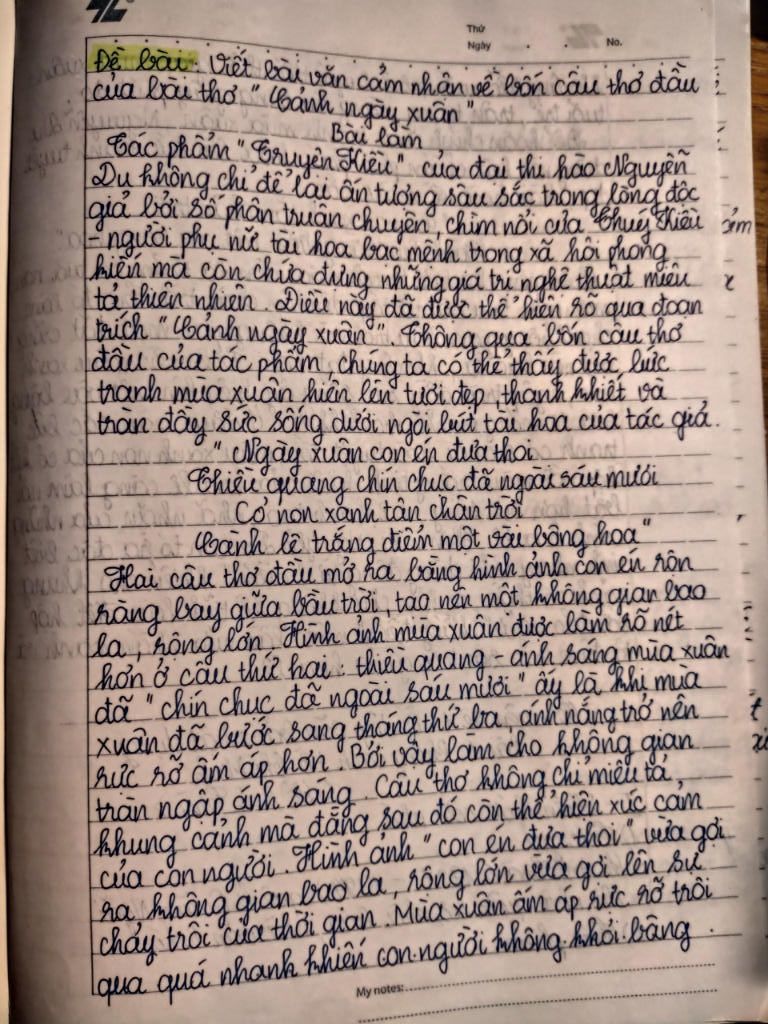 Thứ
Ngày . . No.
Đề bài: Viết bài văn cảm nhận về bốn câu thơ đầu
của bài thơ "Cảnh ngày xuân"
Bài làm
Tác phẩm "Truyện Kiều" của đại thi hào Nguyễn
Du không chỉ để lại ấn tượng sâu sắc trong lòng độc
giả bởi số phận truân chuyên, chìm nổi của Thuý Kiều
- người phụ nữ tài hoa bạc mệnh trong xã hội phong
kiến mà còn chứa đựng những giá trị nghệ thuật miêu
tả thiên nhiên. Điều này đã được thể hiện rõ qua đoạn
trích "Cảnh ngày xuân". Thông qua bốn câu thơ
đầu của tác phẩm, chúng ta có thể thấy được bức
tranh mùa xuân hiện lên tươi đẹp, thanh khiết và
tràn đầy sức sống dưới ngòi bút tài hoa của tác giả.
"Ngày xuân con én đưa thoi
Thiều quang chín chục đã ngoài sáu mươi
Cỏ non xanh tận chân trời
Cành lê trắng điểm một vài bông hoa"
Hai câu thơ đầu mở ra bằng hình ảnh con én rộn
ràng bay giữa bầu trời, tạo nên một không gian bao
la, rộng lớn. Hình ảnh mùa xuân được làm rõ nét
hơn ở câu thứ hai: thiều quang - ánh sáng mùa xuân
đã "chín chục đã ngoài sáu mươi" ấy là khi mùa
xuân đã bước sang tháng thứ ba, ánh nắng trở nên
rực rỡ ấm áp hơn. Bởi vậy làm cho không gian
tràn ngập ánh sáng. Câu thơ không chỉ miêu tả
khung cảnh mà đằng sau đó còn thể hiện xúc cảm
của con người. Hình ảnh "con én đưa thoi" vừa gợi
ra không gian bao la, rộng lớn vừa gợi lên sự
chảy trôi của thời gian. Mùa xuân ấm áp rực rỡ trôi
qua quá nhanh khiến con người không khỏi bâng
My notes: